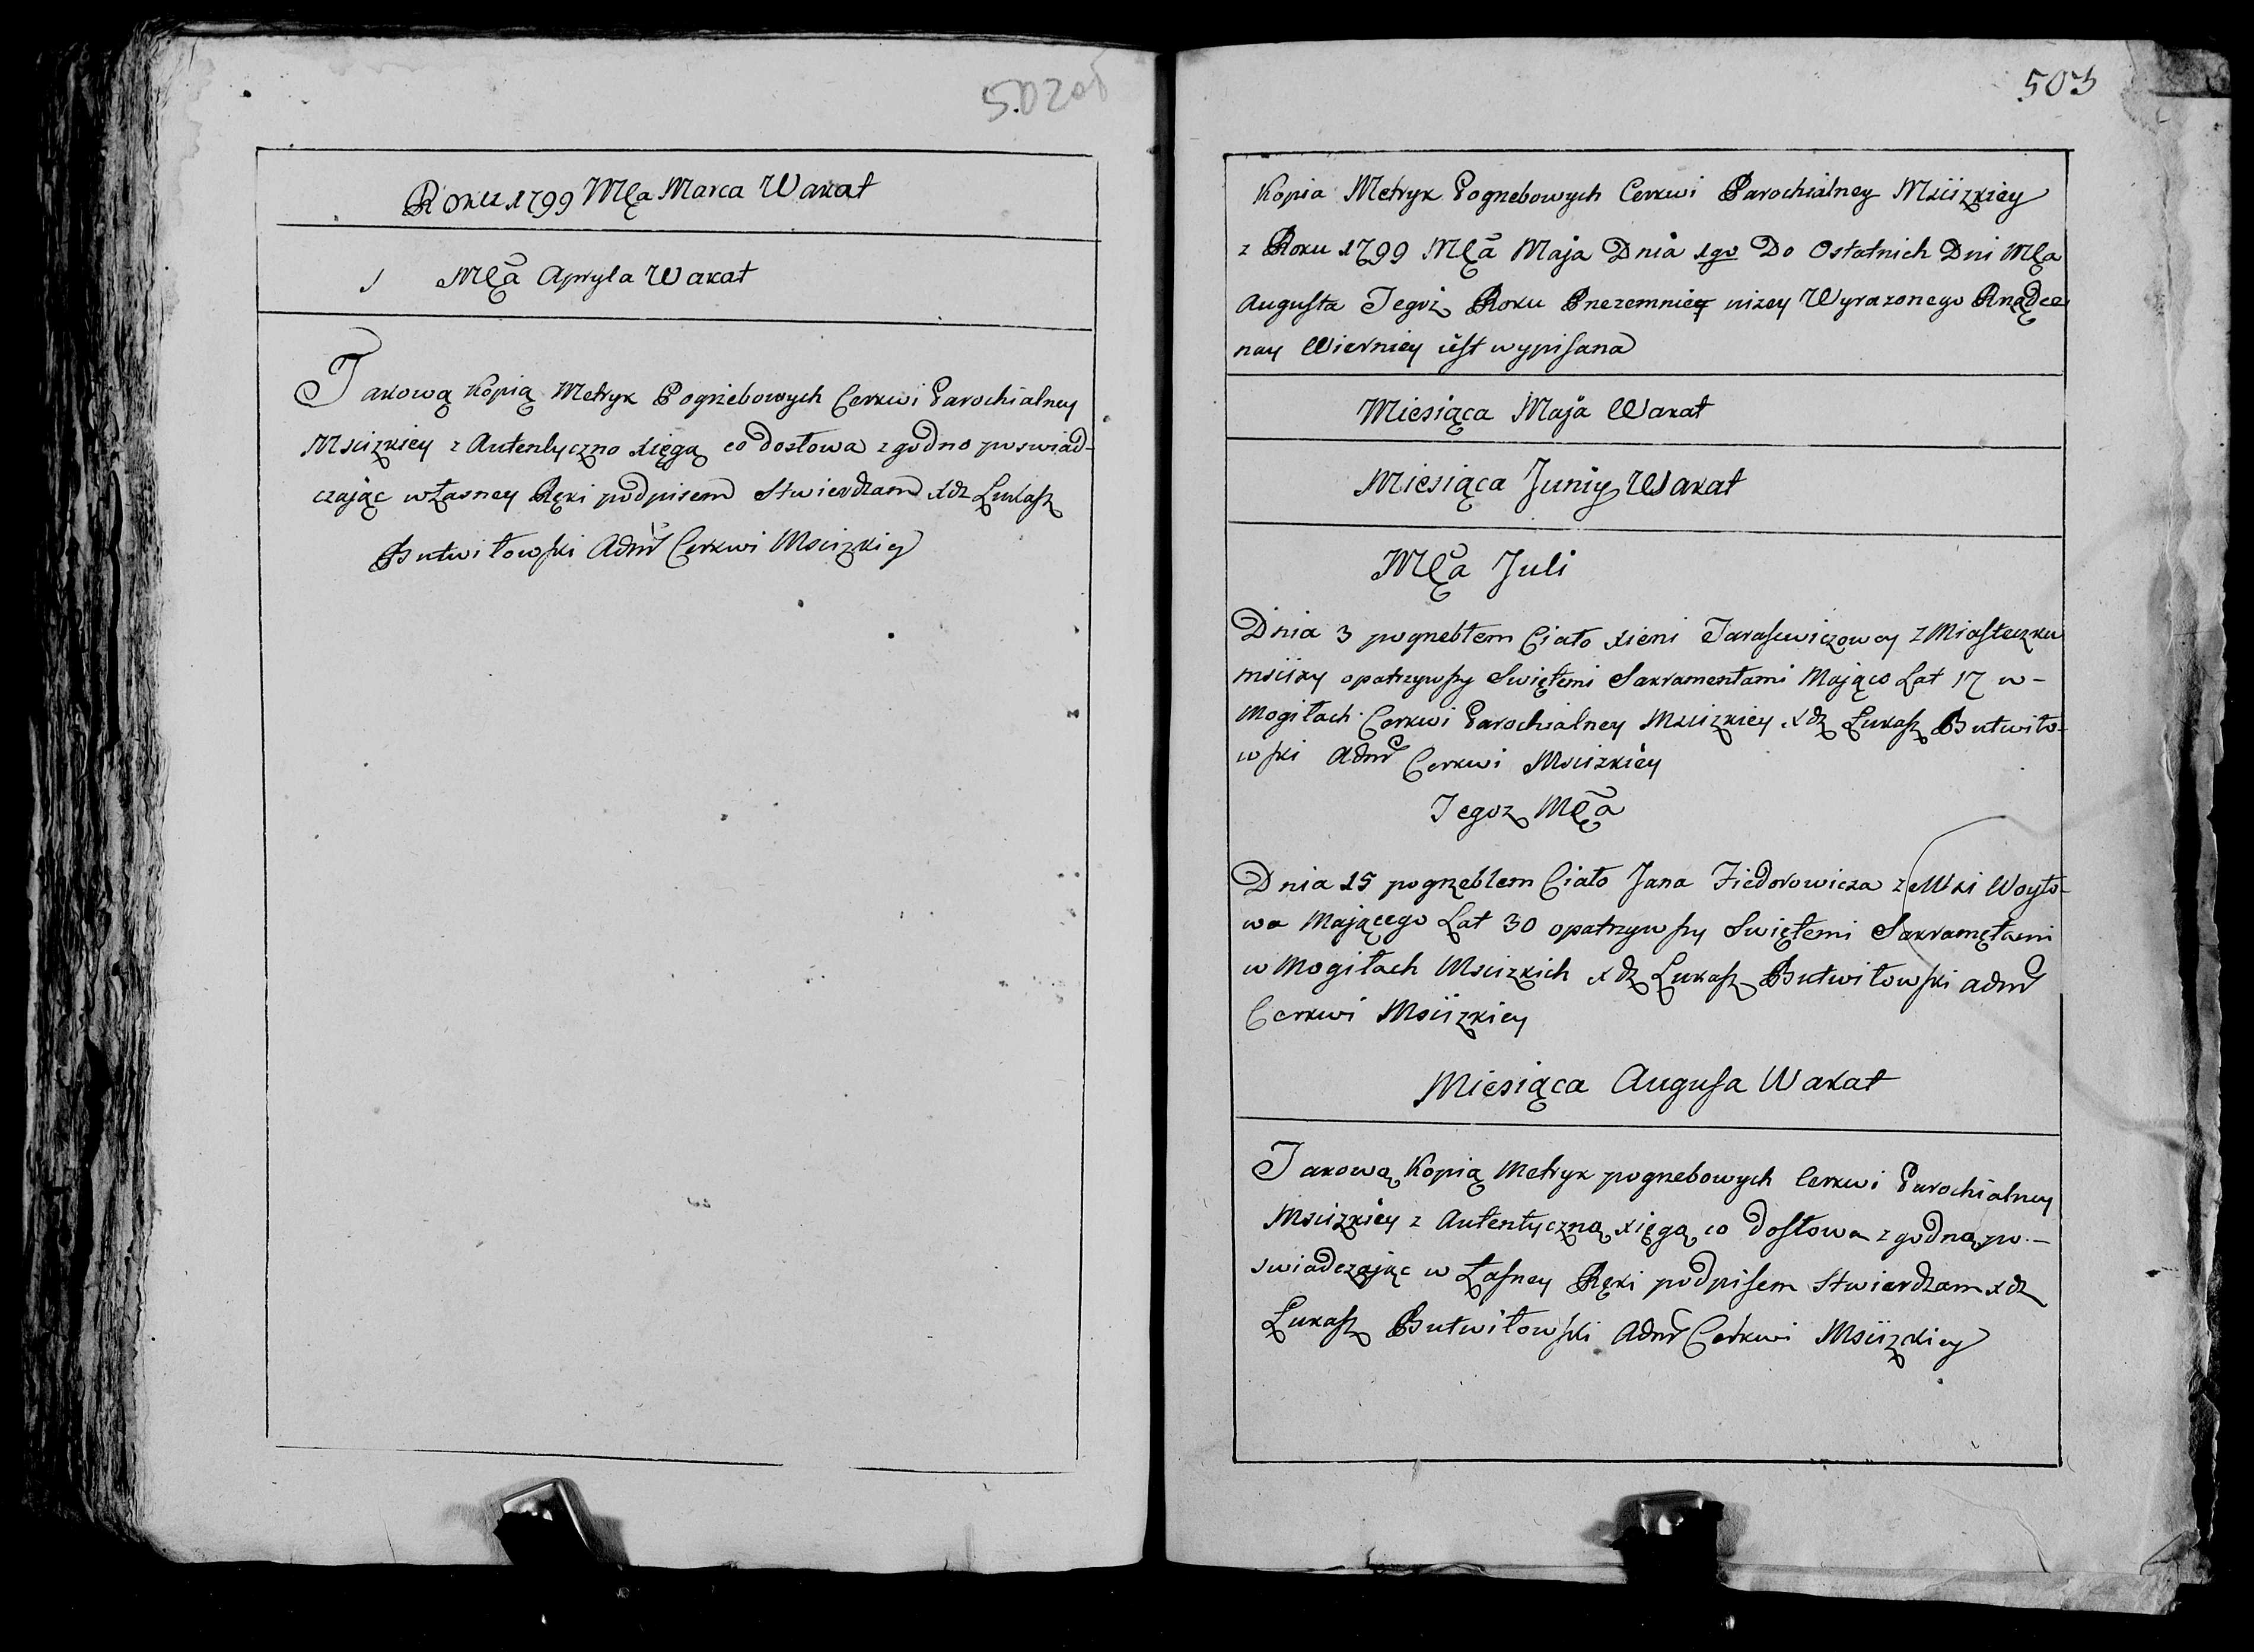 502об
Roku 1799 Mca Marca Wakat
Mca Apryla Wakat
Takową Kopią Metryk Pogrzebowych Cerkwi Parochialney
Mscizkiey z Autentyczno xięgą co dosłowa zgodno poswiad-
czając własney Ręki podpisem stwierdzam xdz Łukasz
Butwiłowski Adm͠r Cerkwi Mscizkiey
503
Kopia Metryk Pogrzebowych Cerkwi Parochialney Msciizkiey
z Roku 1799 Mca Maja Dnia 1go Do Ostatnich Dni Mca
Augusta Tegoż Roku Przezemnie niżey Wyrażonego
nay Wierniey iest wypisana
Miesiąca Maja Wakat
Miesiąca Juniy Wakat
Mca Juli
Dnia 3 pogrzebłem Ciało xieni Tarasewiczowey z Miasteczku
msciży opatrzywszy Swiętemi Sakramentami Mająco Lat 17 w-
Mogiłach Cerkwi Parochialney Mscizkiey xdz Łukasz Butwiło-
wski Adm͠r Cerkwi Mscizkiey
Tegoż Mca
Dnia 15 pogrzeblem Ciało Jana Fiedorowicza z Wsi Woyto-
wa Mającego Lat 30 opatrzywszy Swiętemi Sakramętami
w Mogiłach Mscizkich xdz Łukasz Butwiłowski adm͠r
Cerkwi Msciizkiey
Miesiąca Augusa Wakat
Takową Kopią Metryk pogrzebowych Cerkwi Parochialney
Mscizkiey z Autentyczną xięgą co dosłowa zgodną po-
swiadczając własney Ręki podpisem stwierdzam xdz
Łukasz Butwiłowski Adm͠r Cerkwi Msciizkiey